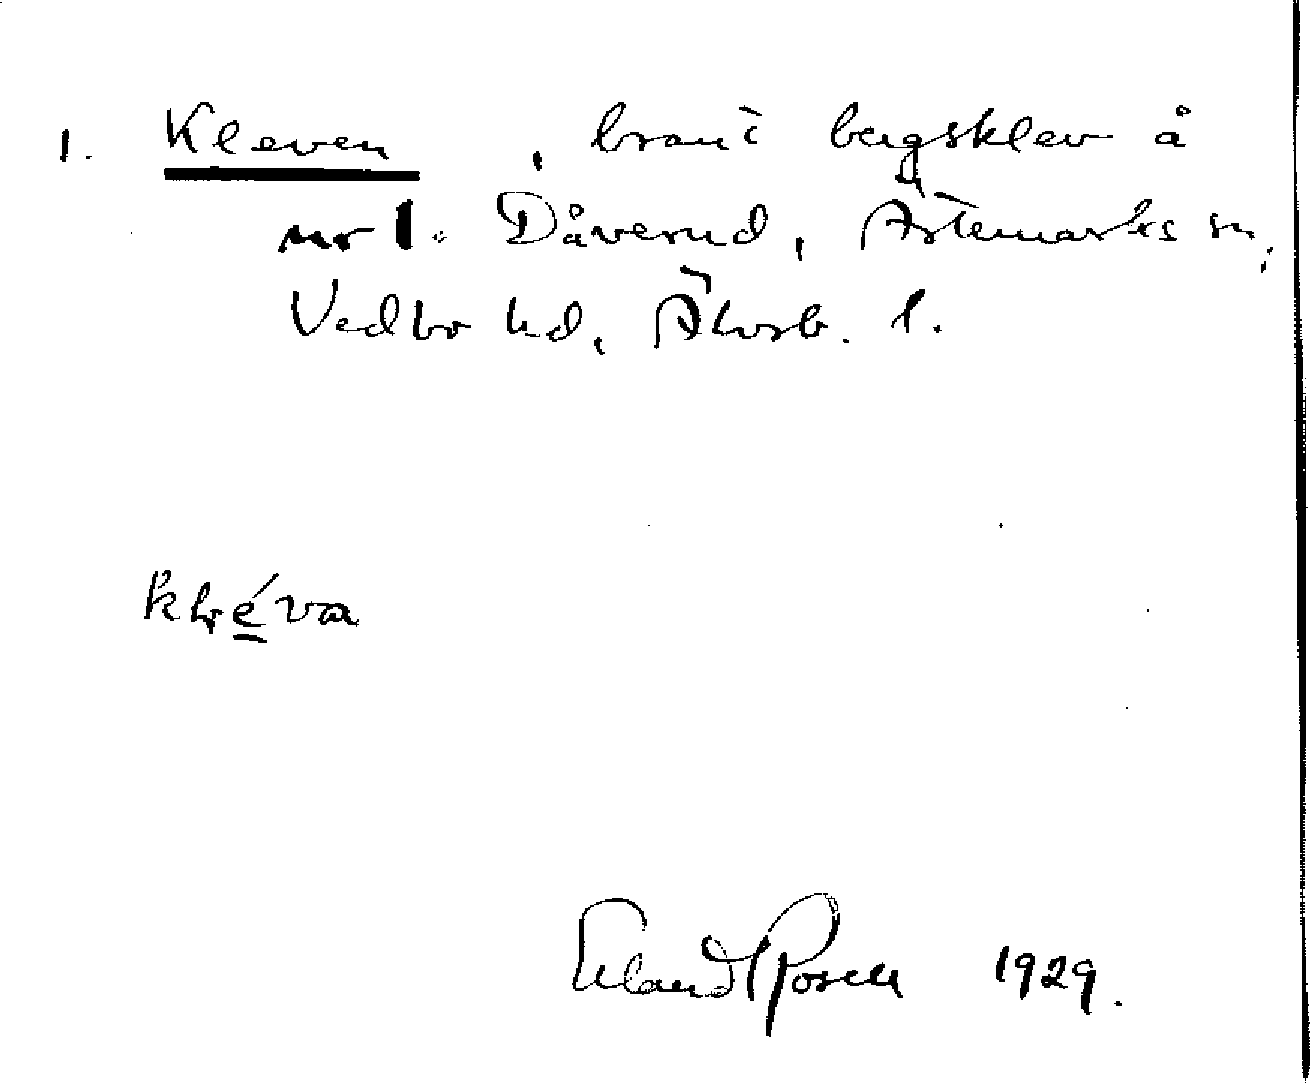 1. Kleven , brant bergsklev å
nr 1. Dåverud, Ärtemarks sn,
Vedbo hd, Älvsb. l.
klẹ́va
Erland Rosell 1929.